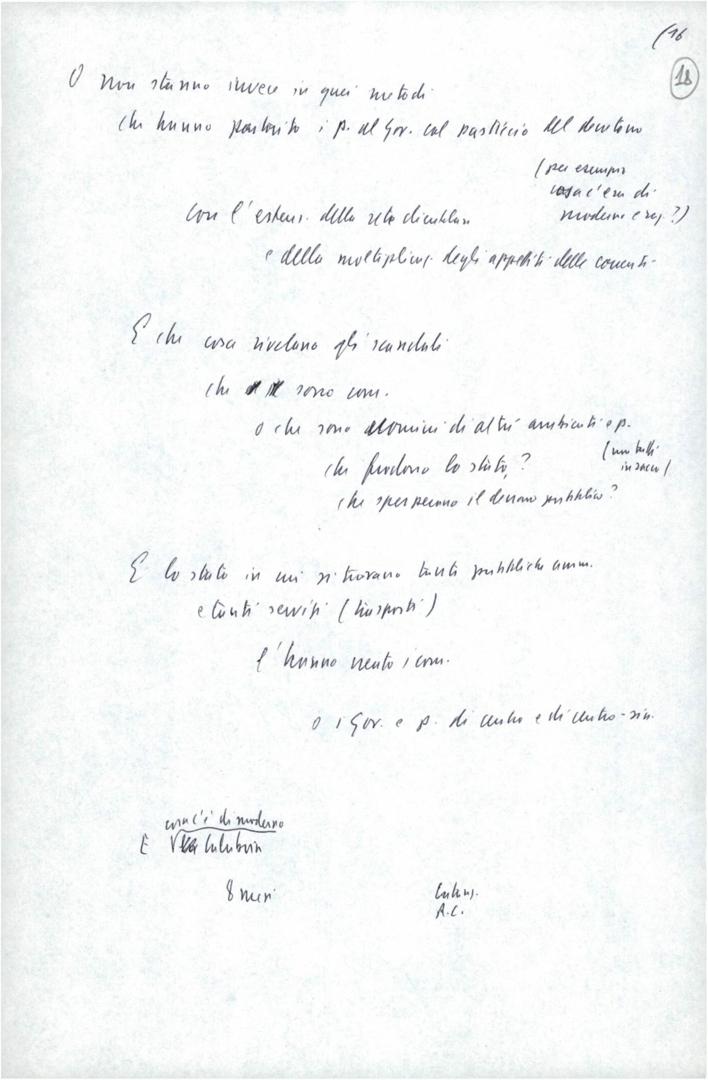 (16
18
O non stanno invece in quei metodi
che hanno partorito i p. al Gov. col pasticcio del decretone
(per esempio
cosa c'era di
moderno e rag.?)
con l'estens. della rete clientelare
e della moltiplicaz. degli appetiti delle correnti
E che cosa rivelano gli scandali
che sono com.
o che sono uomini di altri ambienti e p.
che frodano lo stato?
(mutui
che sperperano il denaro pubblico?
E lo stato in cui si trovano tanti pubbliche amm.
e tanti servizi (trasporti)
l'hanno creato i com.
o i Gov. e p. di centro e di centro-sin.
cosa c'è di moderno
E Calabria
8 mesi
Catanz.
R.C.